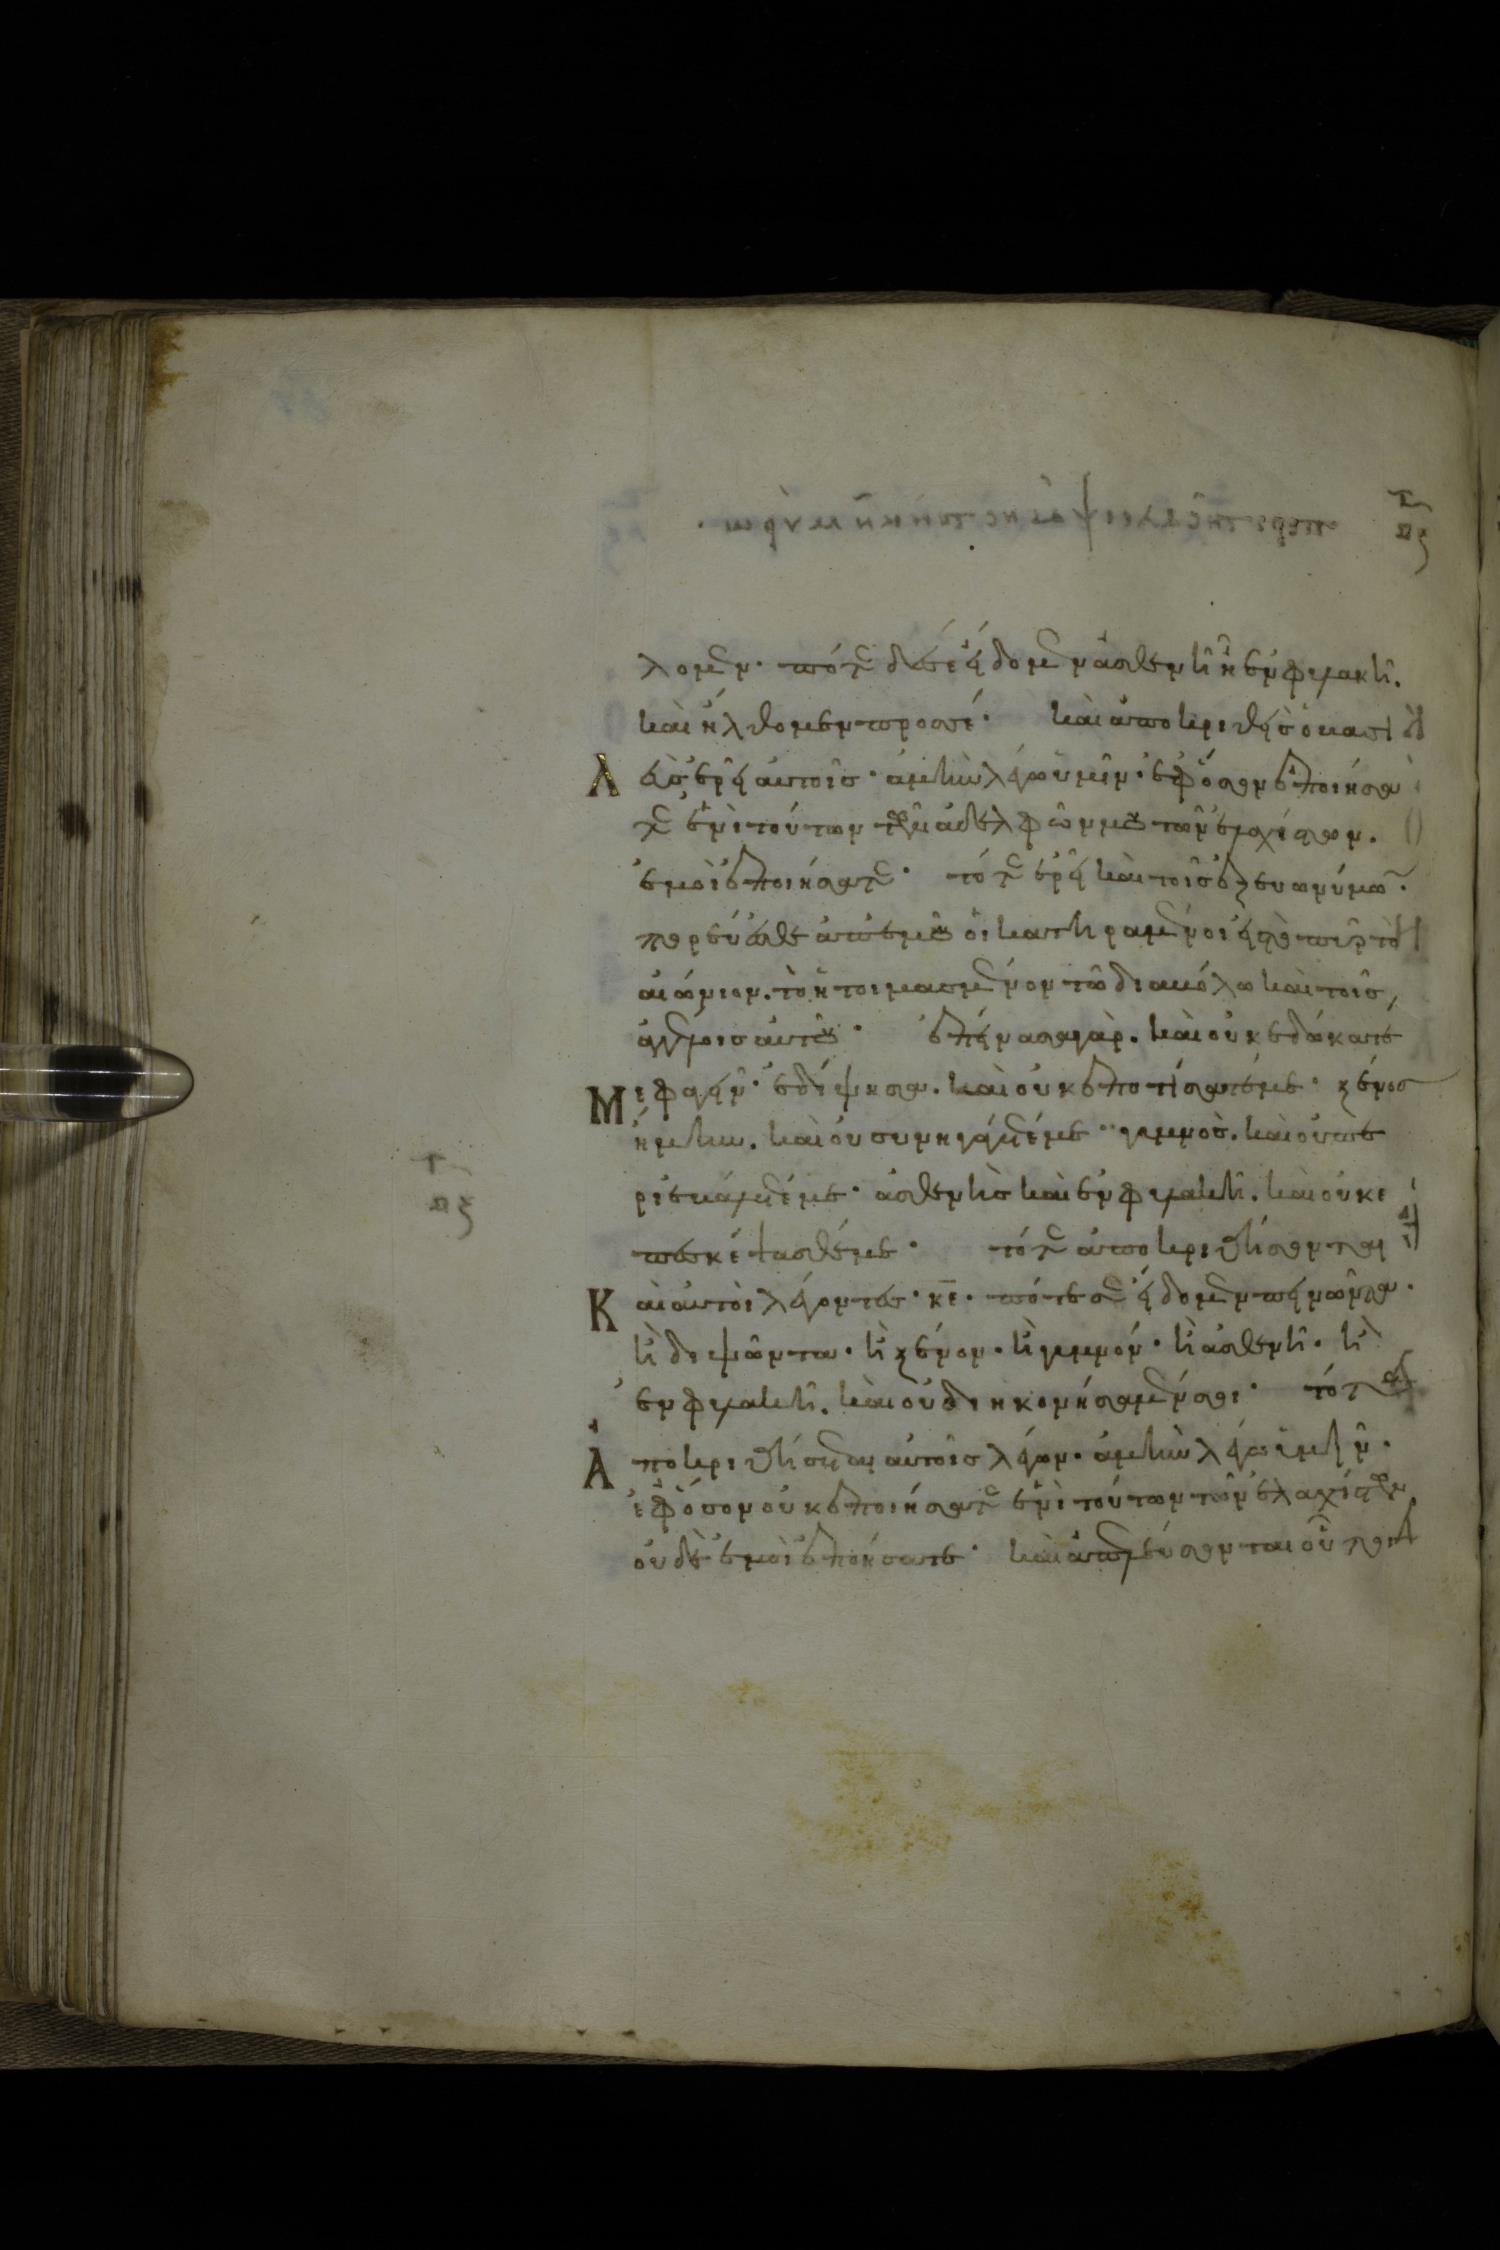 λομεν· πότε δέ σε εἴδομεν ἀσθενῆ ἢ ἐν φυλακῆ.
καὶ ἤλθομεν πρὸς σέ· καὶ ἀποκριθεὶς ὁ βασι
λεὺς ἐρεῖ αὐτοῖς· ἀμὴν λέγω ὑμῖν· ἐφ' ὅσον ἐποιήσα
τε ἑνὶ τούτων τῶν ἀδελφῶν μου τῶν ἐλαχίστων.
ἐμοὶ ἐποιήσατε· τότε ἐρεῖ καὶ τοῖς ἐξ εὐωνύμων·
πορεύεσθε ἀπ' ἐμοῦ οἱ κατηραμένοι εἰς τὸ πῦρ τὸ
αἰώνιον. τὸ ἡτοιμασμένον τῶ διαβόλω καὶ τοῖς
ἀγγέλοις αὐτοῦ· ἐπείνασα γὰρ. καὶ οὐκ ἐδώκατέ
μοι φαγεῖν· ἐδίψησα. καὶ οὐκ ἐποτίσατέ με· ξένος
ἤμην. καὶ οὐ συνηγάγετέ με· γυμνὸς. καὶ οὐ πε
ριεβάλετέ με· ἀσθενὴς καὶ ἐν φυλακῆ. καὶ οὐκ ἐ
πεσκέψασθέ με· τότε ἀποκριθήσονται
καὶ αὐτοὶ λέγοντες· κε· πότε σε εἴδομεν πεινῶντα·
ἢ διψῶντα· ἢ ξένον· ἢ γυμνόν· ἢ ἀσθενῆ· ἢ
ἐν φυλακῆ. καὶ οὐ διηκονήσαμέν σοι· τότε
ἀποκριθήσεται αὐτοῖς λέγων· ἀμὴν λέγω ὑμῖν·
ἐφ' ὅσον οὐκ ἐποιήσατε ἑνὶ τούτων τῶν ἐλαχίστων
οὐδὲ ἐμοὶ ἐποιήσατε· καὶ ἀπελεύσονται οὗτοι